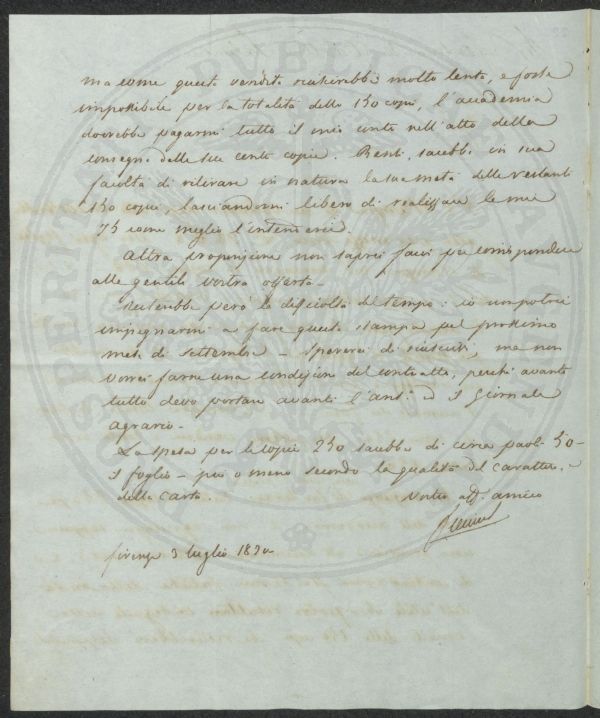 ma come questa vendita riuscirebbe molto lenta, e forse
impossibile per la totalità delle 150 copie, l'accademia
dovrebbe pagarmi tutto il mio conto nell'atto della
consegna delle sue cento copie. Bensì, sarebbe in sua
facoltà di ritirare in natura la sua metà delle restanti
150 copie, lasciandomi libero di realizzare le mie
75 come meglio l'intenderei.
Altra proposizione non saprei farvi per corrispondere
alle gentile vostra offerta.
Resterebbe però la difficoltà del tempo: io non potrei
impegnarmi a fare questa stampa pel prossimo
mese di Settembre - Spererei di riuscirvi, ma non
vorrei farne una condizione del contratto, perchè avanti
tutto devo portare avanti l'Ant: e il Giornale
agrario.
La spesa per le copie 250 sarebbe di circa paoli 50-
il foglio - più o meno secondo la qualità del carattere, e
della carta. Vostro aff. amico
Firenze 3 luglio 1830